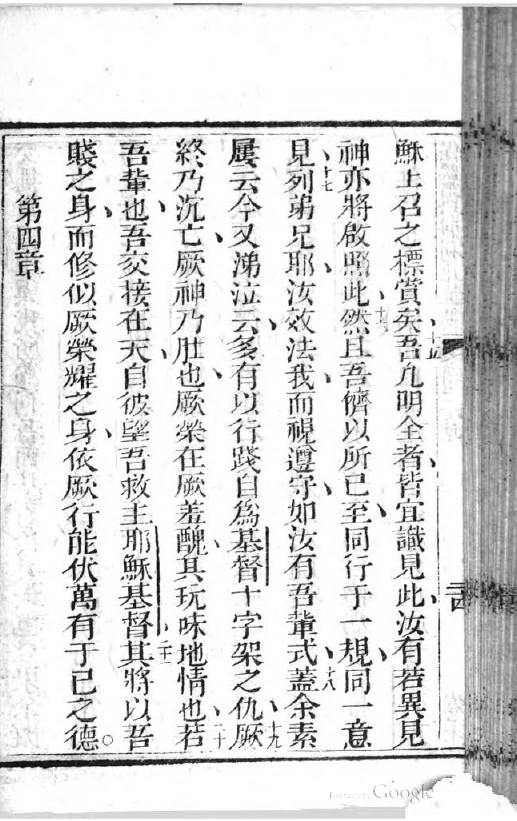 穌上召之標賞矣吾凡明全者皆宜識見此汝有若異見
十五
神亦將啟照此然且吾儕以所已至同行于一規同一意
十六
見列弟兄耶汝效法我而視遵守如汝有吾輩式蓋余素
十七
十八
屢云今又涕泣云多有以行踐自為基督十字架之仇厥
十九
終乃沉亡厥神乃肚也厥榮在厥羞醜其玩味地情也若
二十
吾輩也吾交接在天自彼望吾救主耶穌基督其將以吾
二十一
賤之身而修似厥榮耀之身依厥行能伏萬有于己之德○
第四章
Google